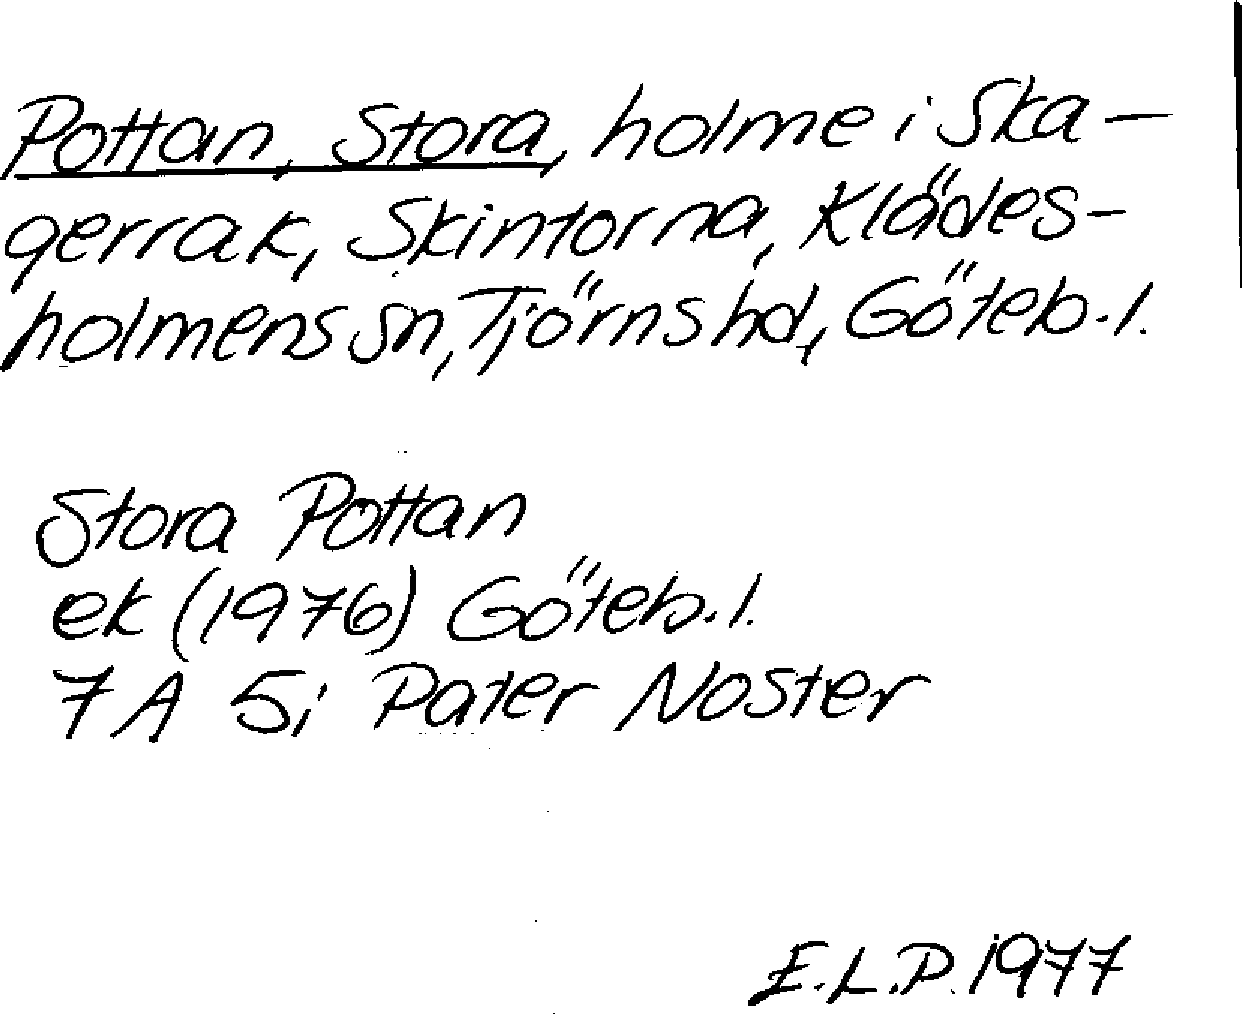 Pottan, Stora, holme i Ska-
gerrak, Skintorna, Klädes-
holmens sn, Tjörns hd, Göteb. l.
Stora Pottan
ek (1976) Göteb. l.
7 A 5 i Pater Noster
E.L.P. 1977